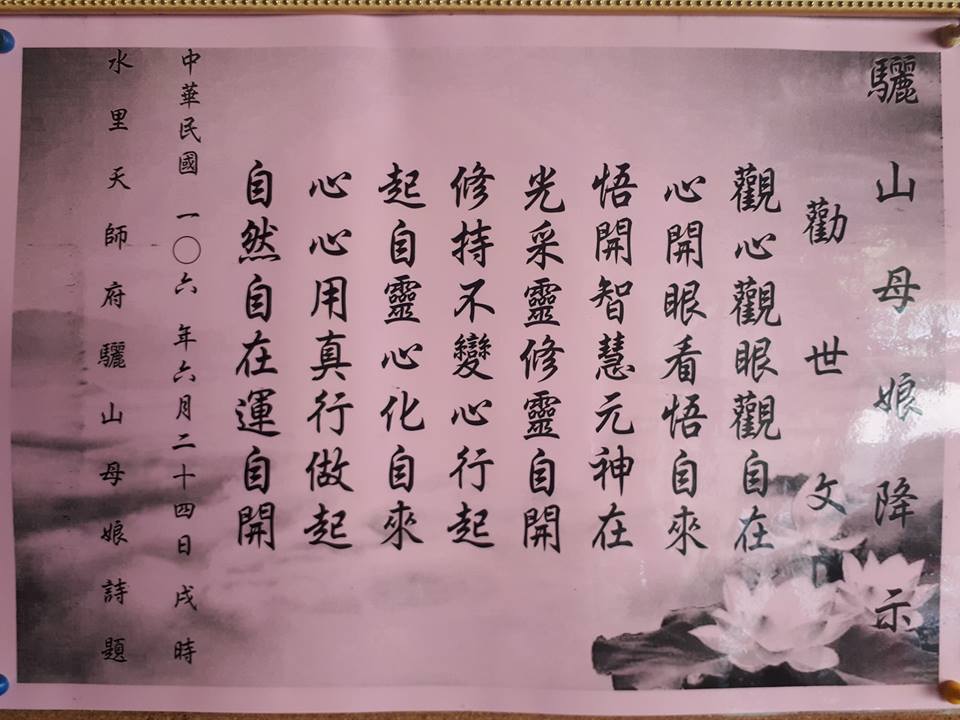 驪山母娘降示
勸世文
觀心觀眼觀自在
心開眼看悟自來
悟開智慧元神在
光采靈修靈自開
修持不變心行起
起自靈心化自來
心心用真行做起
自然自在運自開
中華民國 一〇六 年六月二十四日 戌時
水里天師府驪山母娘詩題